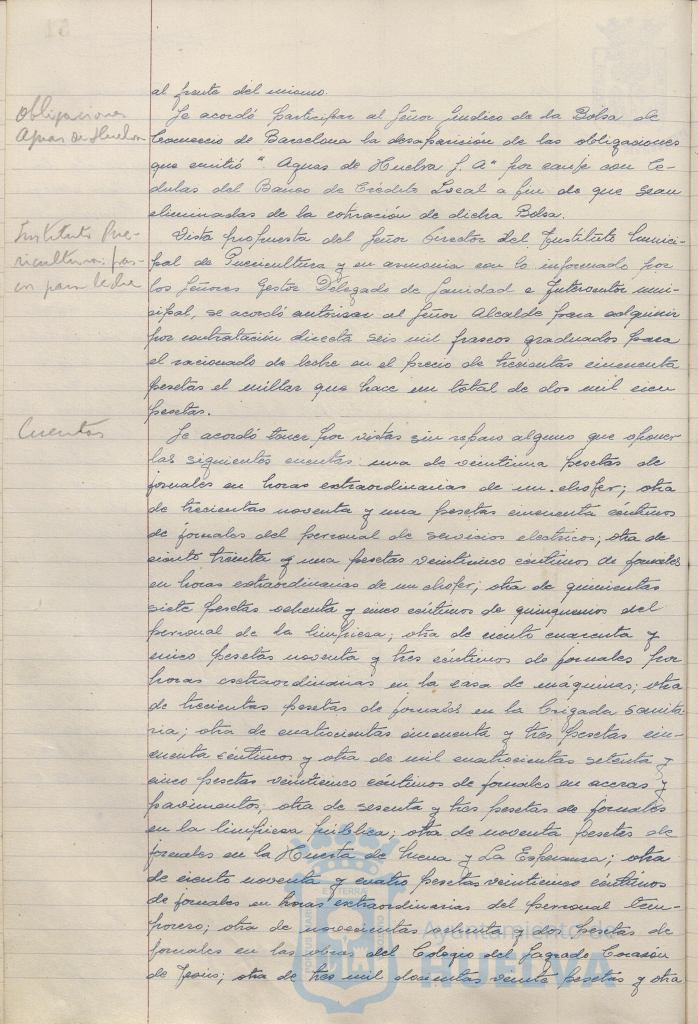 al frente del mismo.
Obligaciones
Aguas de Huelva
Se acordó participar al Señor Sindico de la Bolsa de
Comercio de Barcelona la desaparición de las obligaciones
que emitió "Aguas de Huelva S. A" por canje con Ce-
dulas del Banco de Crédito Local a fin de que sean
eliminadas de la cotización de dicha Bolsa.
Instituto Pue-
ricultura: fras-
cos para leche
Vista propuesta del Señor Director del Instituto Munici-
pal de Puericultura y en armonia con lo informado por
los Señores Gestor Delegado de Sanidad e Interventor muni-
cipal, se acordó autorizar al Señor Alcalde para adquirir
por contratación directa seis mil frascos graduados para
el racionado de leche en el precio de trecientas cincuenta
pesetas el millar que hace un total de dos mil cien
pesetas.
Cuentas
Se acordó tener por vistas sin reparo alguno que oponer
las siguientes cuentas: una de veintiuna pesetas de
jornales en horas extraordinarias de un chofer; otra
de trecientas noventa y una pesetas cincuenta céntimos
de jornales del personal de servicios electricos; otra de
ciento treinta y una pesetas veinticinco céntimos de jornales
en horas extraordinarias de un chofer; otra de quinientas
siete pesetas ochenta y cinco céntimos de quinquenios del
personal de la limpieza; otra de ciento cuarenta y
cinco pesetas noventa y tres céntimos de jornales por
horas extraordinarias en la casa de máquinas; otra
de trecientas pesetas de jornales en la brigada sanita-
ria; otra de cuatrocientas cincuenta y tres pesetas cin-
cuenta céntimos y otra de mil cuatrocientas setenta y
cinco pesetas veinticinco céntimos de jornales en aceras y
pavimentos; otra de sesenta y tres pesetas de jornales
en la limpieza pública; otra de noventa pesetas de
jornales en la Huerta de Mena y La Esperanza; otra
de ciento noventa y cuatro pesetas veinticinco céntimos
de jornales en horas extraordinarias del personal tem-
porero; otra de novecientas ochenta y dos pesetas de
jornales en las obras del Colegio del Sagrado Corazón
de Jesús; otra de tres mil docientas veinte pesetas y otra
Ayuntamiento de
HUELVA